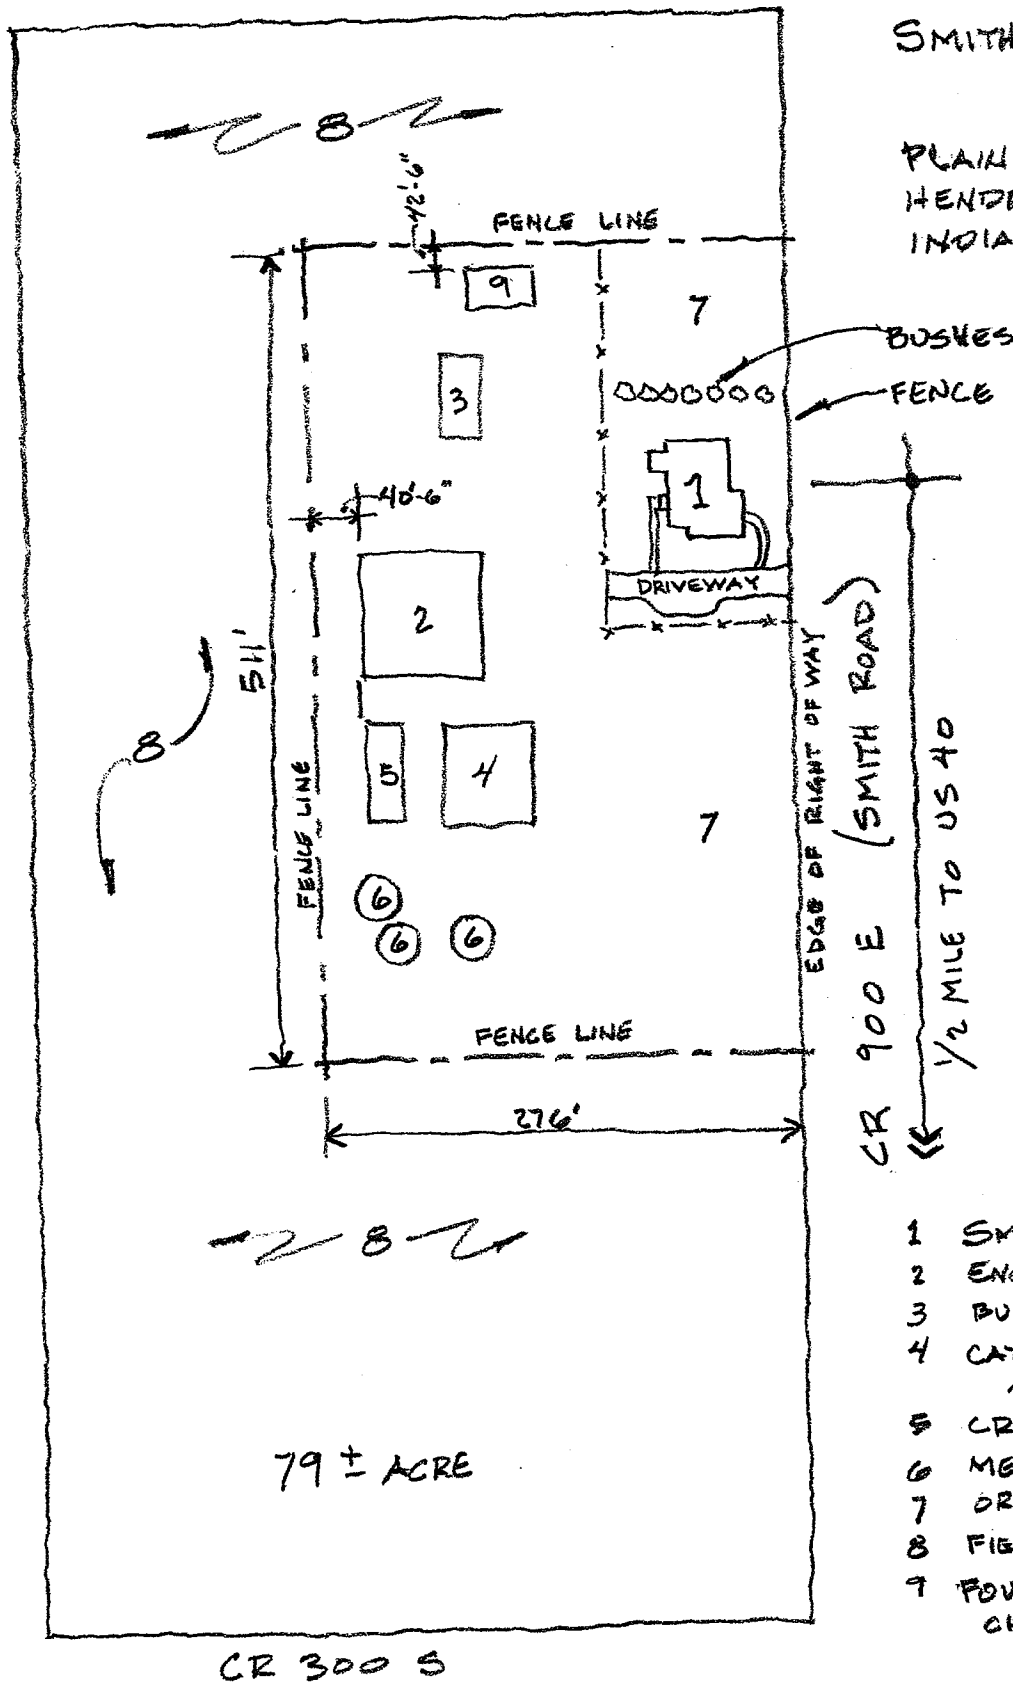 SMITH
PLAIN
HENDE
INDIA
8
42'-6"
FENCE LINE
9
7
BUSHES
FENCE
3
1
40'-6"
DRIVEWAY
2
511'
8
5
4
7
FENCE LINE
EDGE OF RIGHT OF WAY
CR 900 E (SMITH ROAD)
1/2 MILE TO US 40
6
6
6
FENCE LINE
276'
8
79 ± ACRE
CR 300 S
1 SM
2 ENG
3 BU
4 CAT
5 CR
6 ME
7 OR
8 FIE
9 FOU
CH